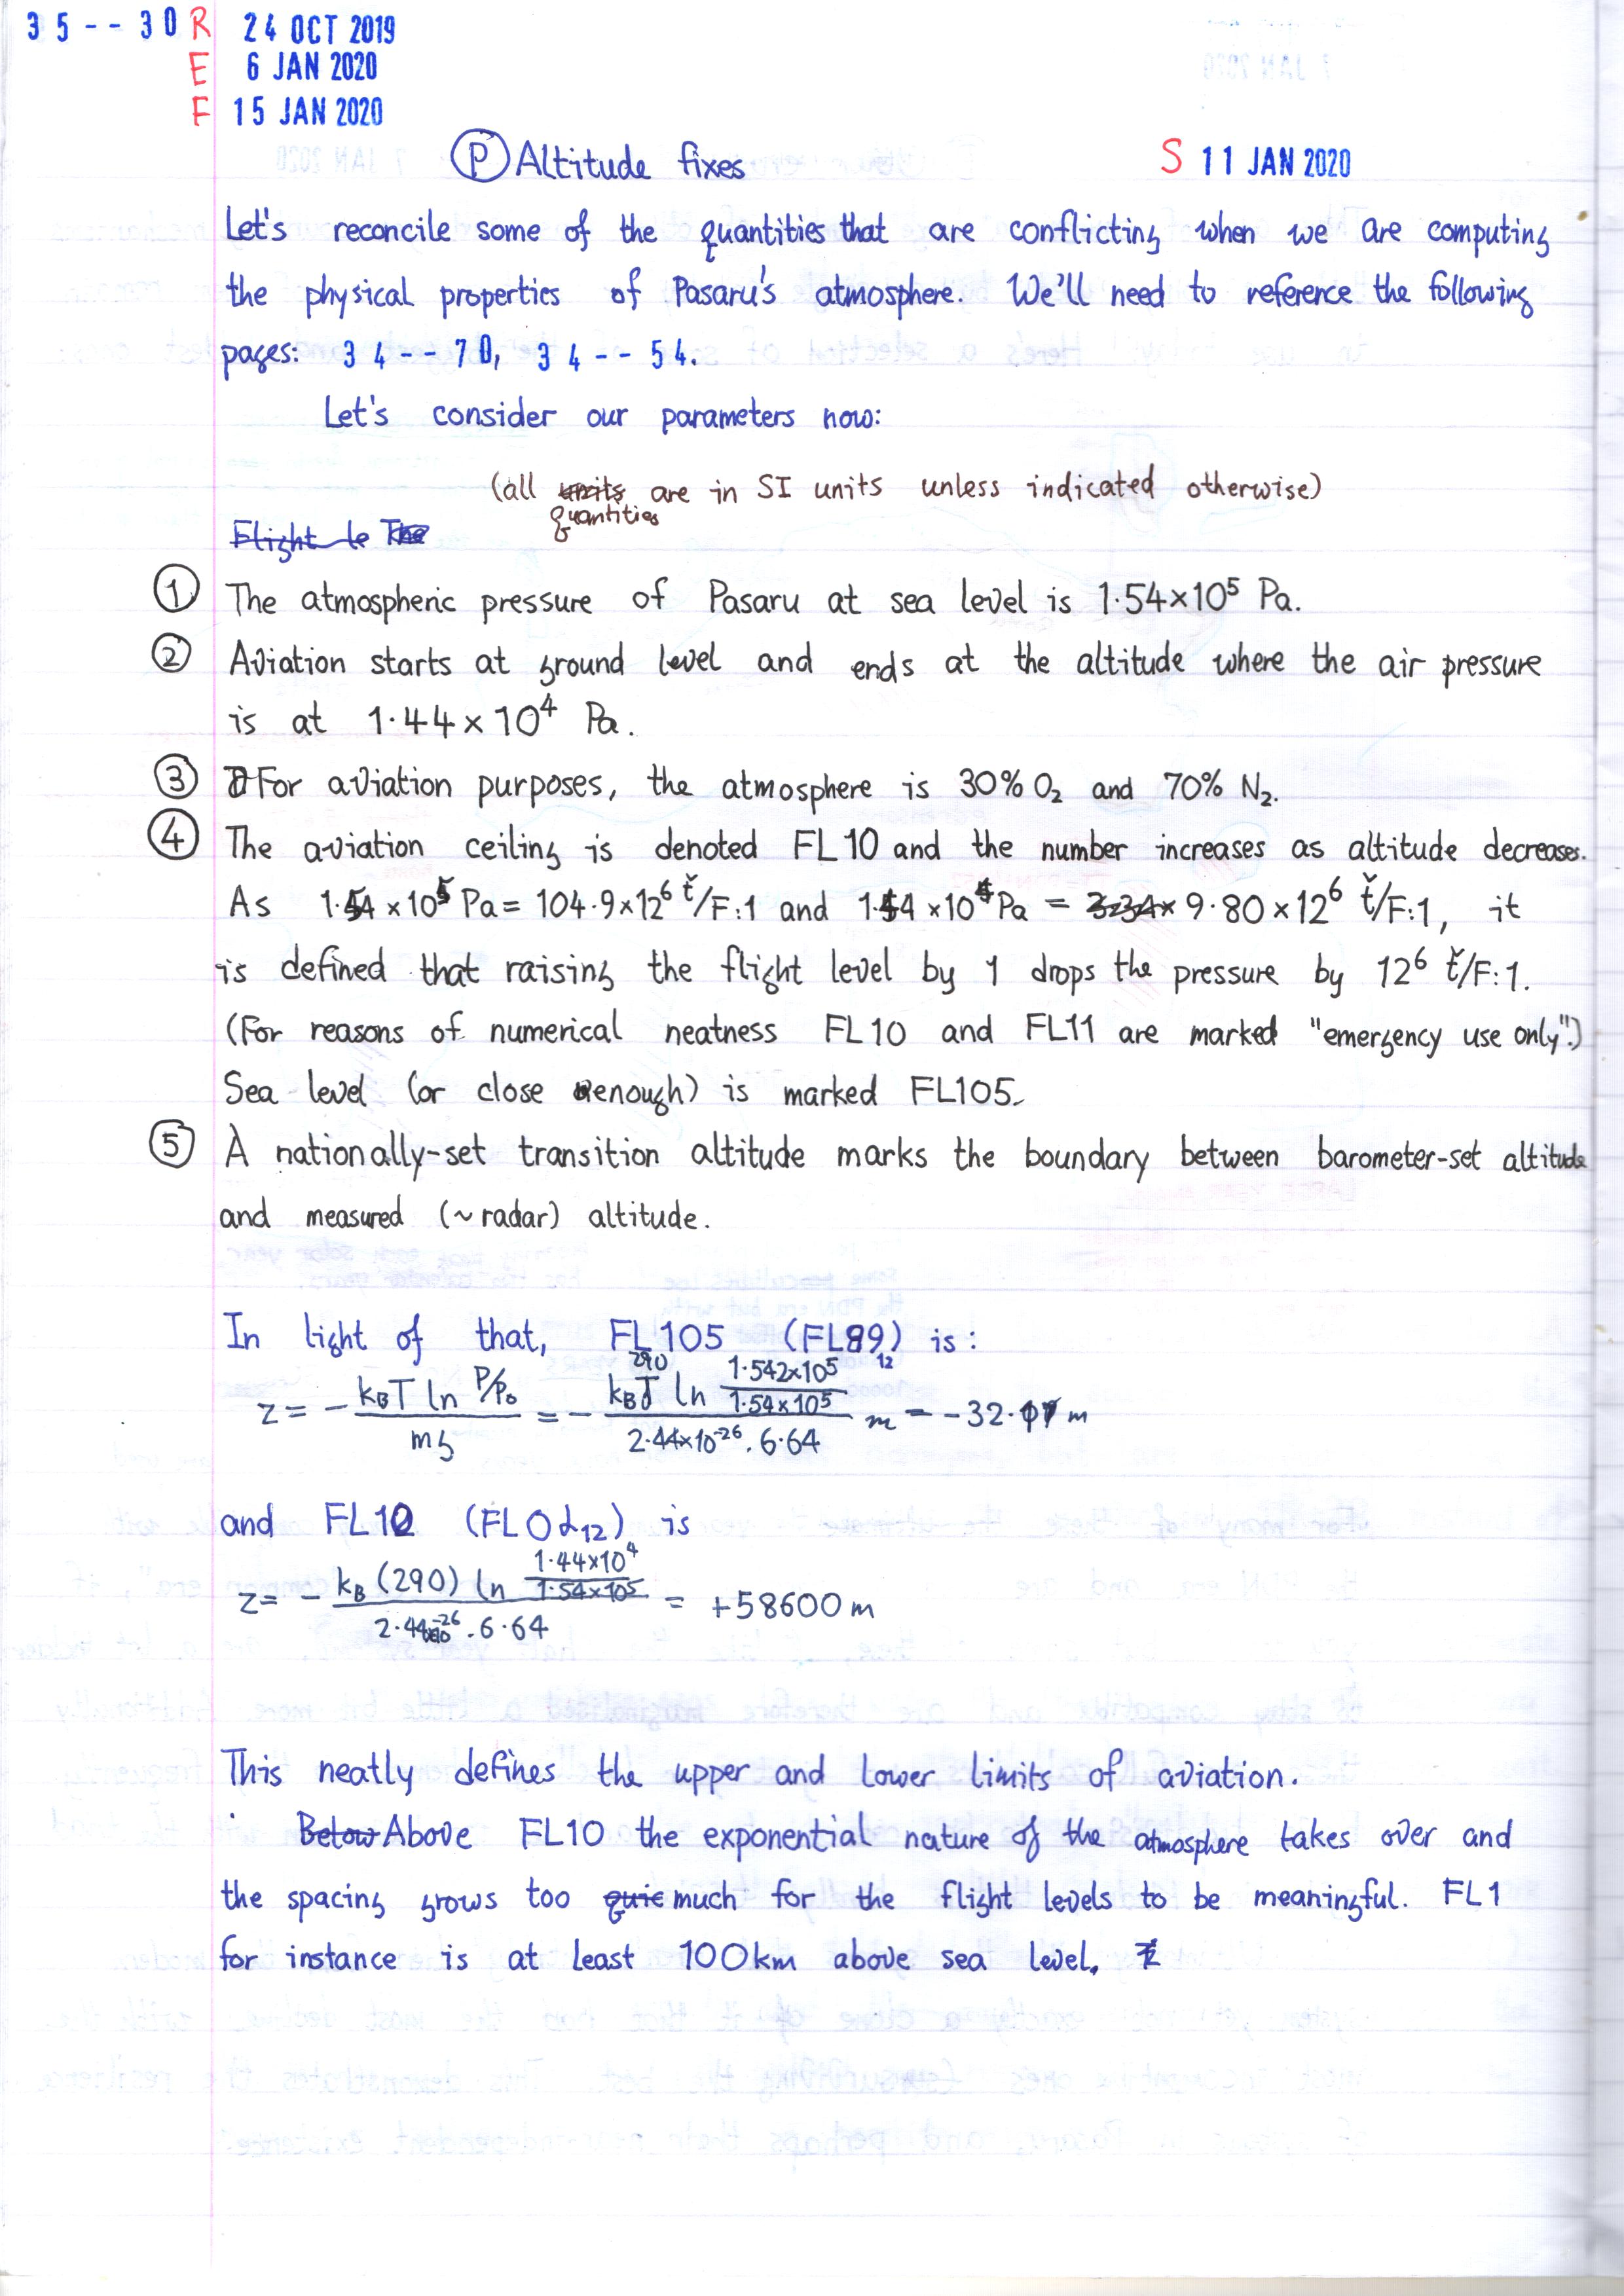 35--30 R 24 OCT 2019
E 6 JAN 2020
F 15 JAN 2020
Ⓟ Altitude fixes S 11 JAN 2020
Let's reconcile some of the quantities that are conflicting when we are computing
the physical properties of Pasaru's atmosphere. We'll need to reference the following
pages: 34--70, 34--54.
Let's consider our parameters now:
(all units are in SI units unless indicated otherwise)
quantities
Flight le The
① The atmospheric pressure of Pasaru at sea level is 1.54×10⁵ Pa.
② Aviation starts at ground level and ends at the altitude where the air pressure
is at 1.44×10⁴ Pa.
③ For aviation purposes, the atmosphere is 30% O₂ and 70% N₂.
④ The aviation ceiling is denoted FL10 and the number increases as altitude decreases.
As 1.54×10⁵ Pa = 104.9×12⁶ ť/F:1 and 1.44×10⁴ Pa = 3.34× 9.80×12⁶ ť/F:1, it
is defined that raising the flight level by 1 drops the pressure by 12⁶ ť/F:1.
(For reasons of numerical neatness FL10 and FL11 are marked "emergency use only".)
Sea level (or close enough) is marked FL105.
⑤ A nationally-set transition altitude marks the boundary between barometer-set altitude
and measured (~radar) altitude.
In light of that, FL105 (FL89₁₂) is:
z = - kBT ln P/P₀ / mg = - kBT 290 ln 1.542×10⁵ / 1.54×10⁵ / 2.44×10⁻²⁶ . 6.64 m = -32.17 m
and FL10 (FL0ᘔ₁₂) is
z = - kB (290) ln 1.44×10⁴ / 1.54×10⁵ / 2.44×10⁻²⁶ . 6.64 = +58600 m
This neatly defines the upper and lower limits of aviation.
Below Above FL10 the exponential nature of the atmosphere takes over and
the spacing grows too quic much for the flight levels to be meaningful. FL1
for instance is at least 100km above sea level.